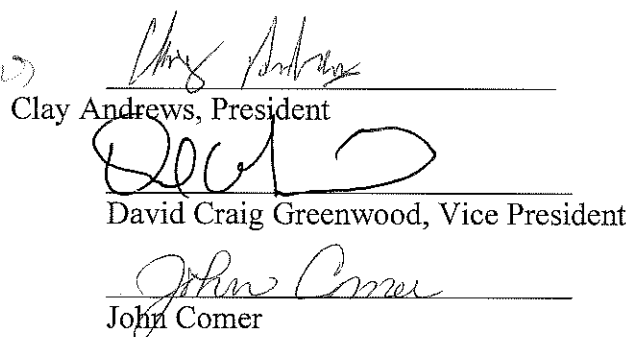 Clay Andrews, President
David Craig Greenwood, Vice President
John Comer
John Comer